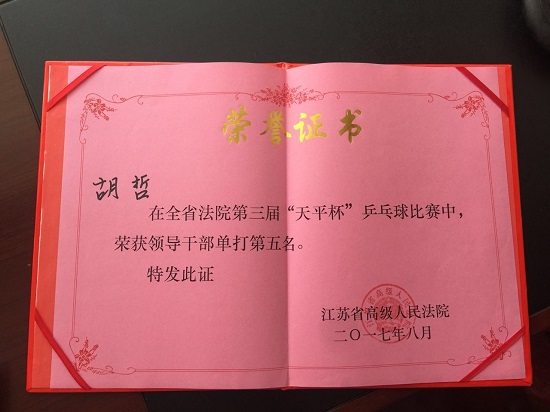 荣誉证书
胡哲
在全省法院第三届“天平杯”乒乓球比赛中，
荣获领导干部单打第五名。
特发此证
江苏省高级人民法院
二〇一七年八月